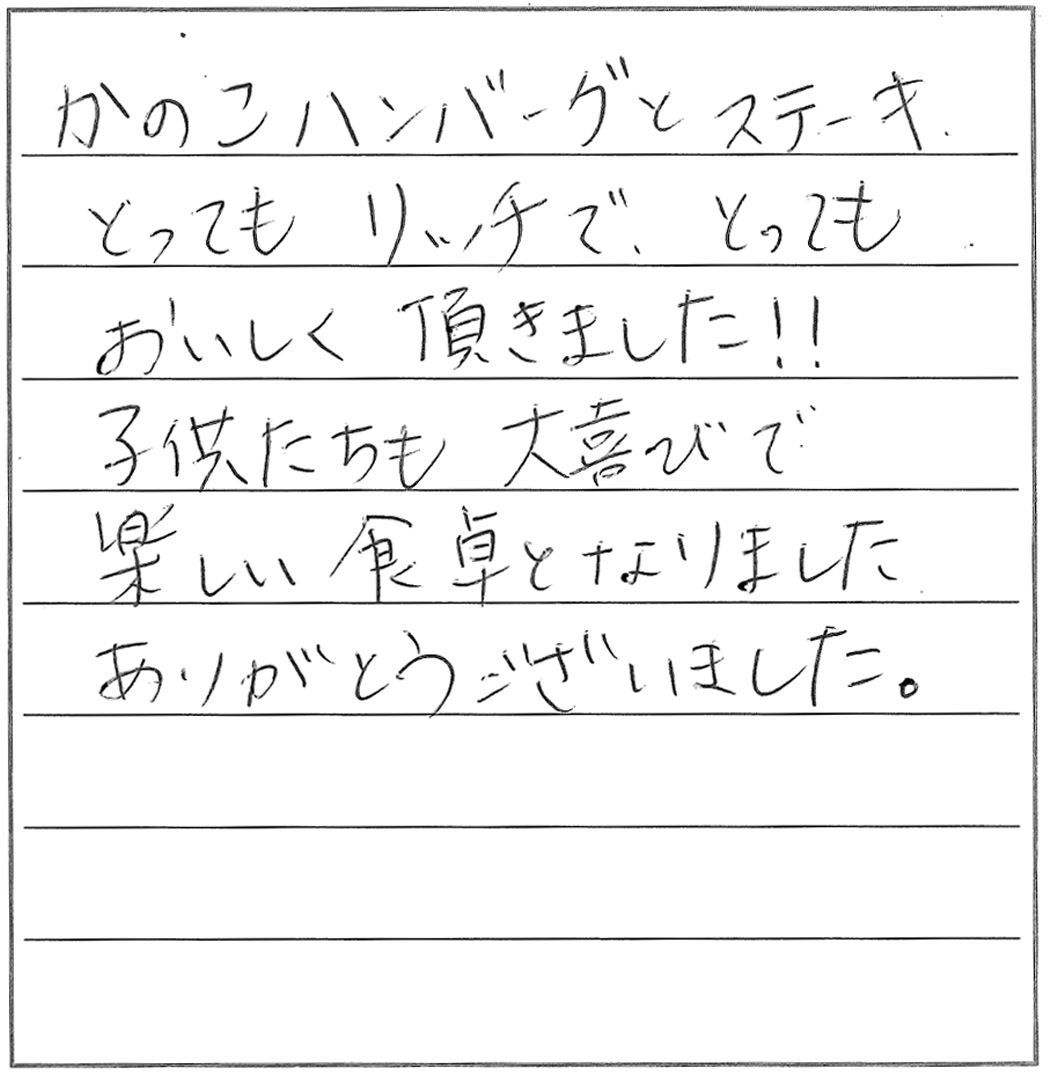 かのこハンバーグとステーキ
とっても リッチで、とっても
おいしく 頂きました!!
子供たちも 大喜びで
楽しい 食卓となりました
ありがとうございました。